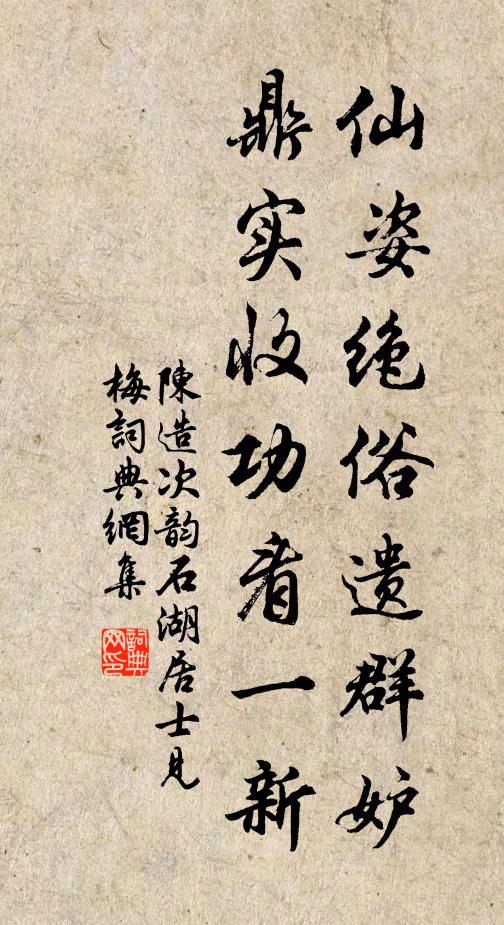 仙姿绝俗遗群妒
鼎实收功看一新
陳造次韵石湖居士見
梅詞典網集
詞典网印